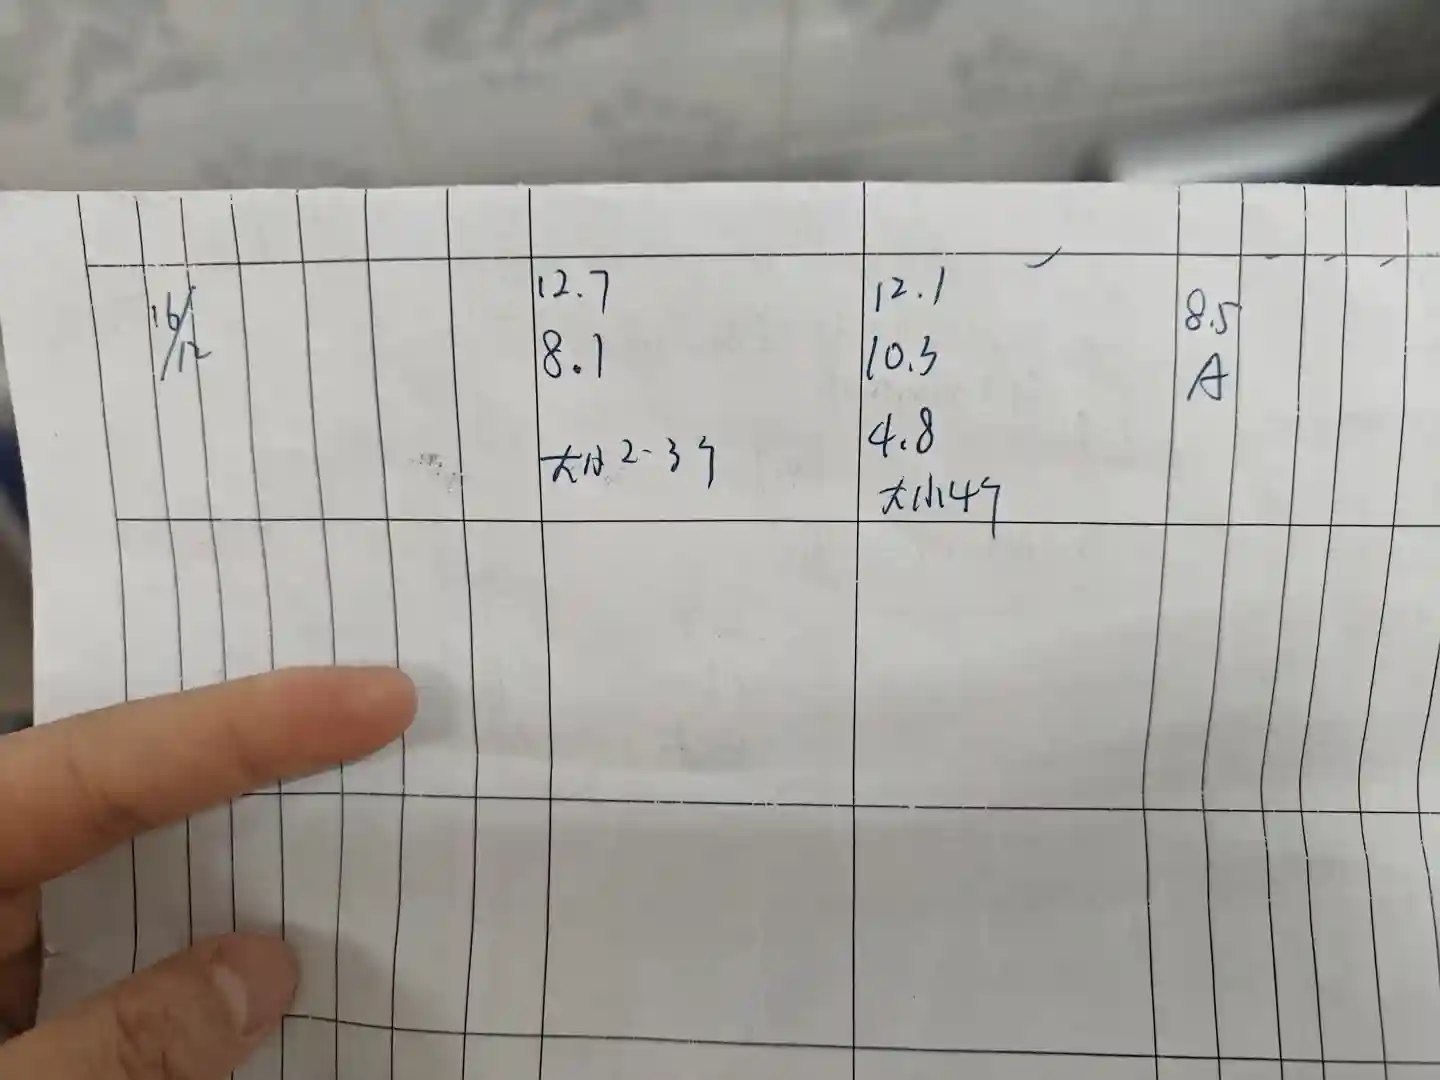 16/12
12.7
8.1
大小2-3个
12.1
10.3
4.8
大小4个
8.5
A